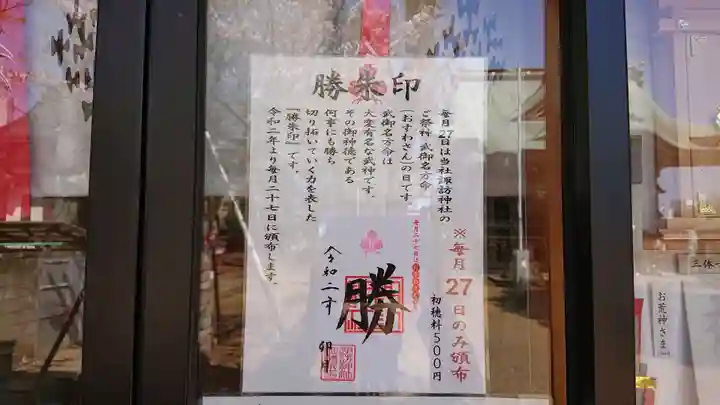 勝朱印
毎月27日は当社諏訪神社の
ご祭神 武御名方命
(おすわさん)の日です。
武御名方命は
大変有名な武神です。
その御神徳である
何事にも勝ち
切り拓いていく力を表した
『勝朱印』です。
令和二年より毎月二十七日に頒布します。
※毎月27日のみ頒布
初穂料500円
勝
令和二年
卯月
三体
お荒神さま